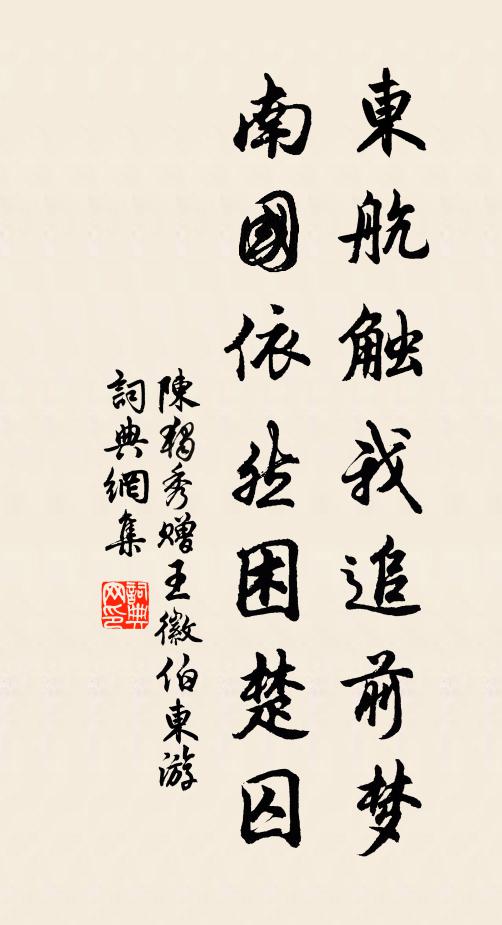 東航触我追前梦
南國依然困楚囚
陳獨秀贈王徽伯東游
詞典網集
詞典
网印